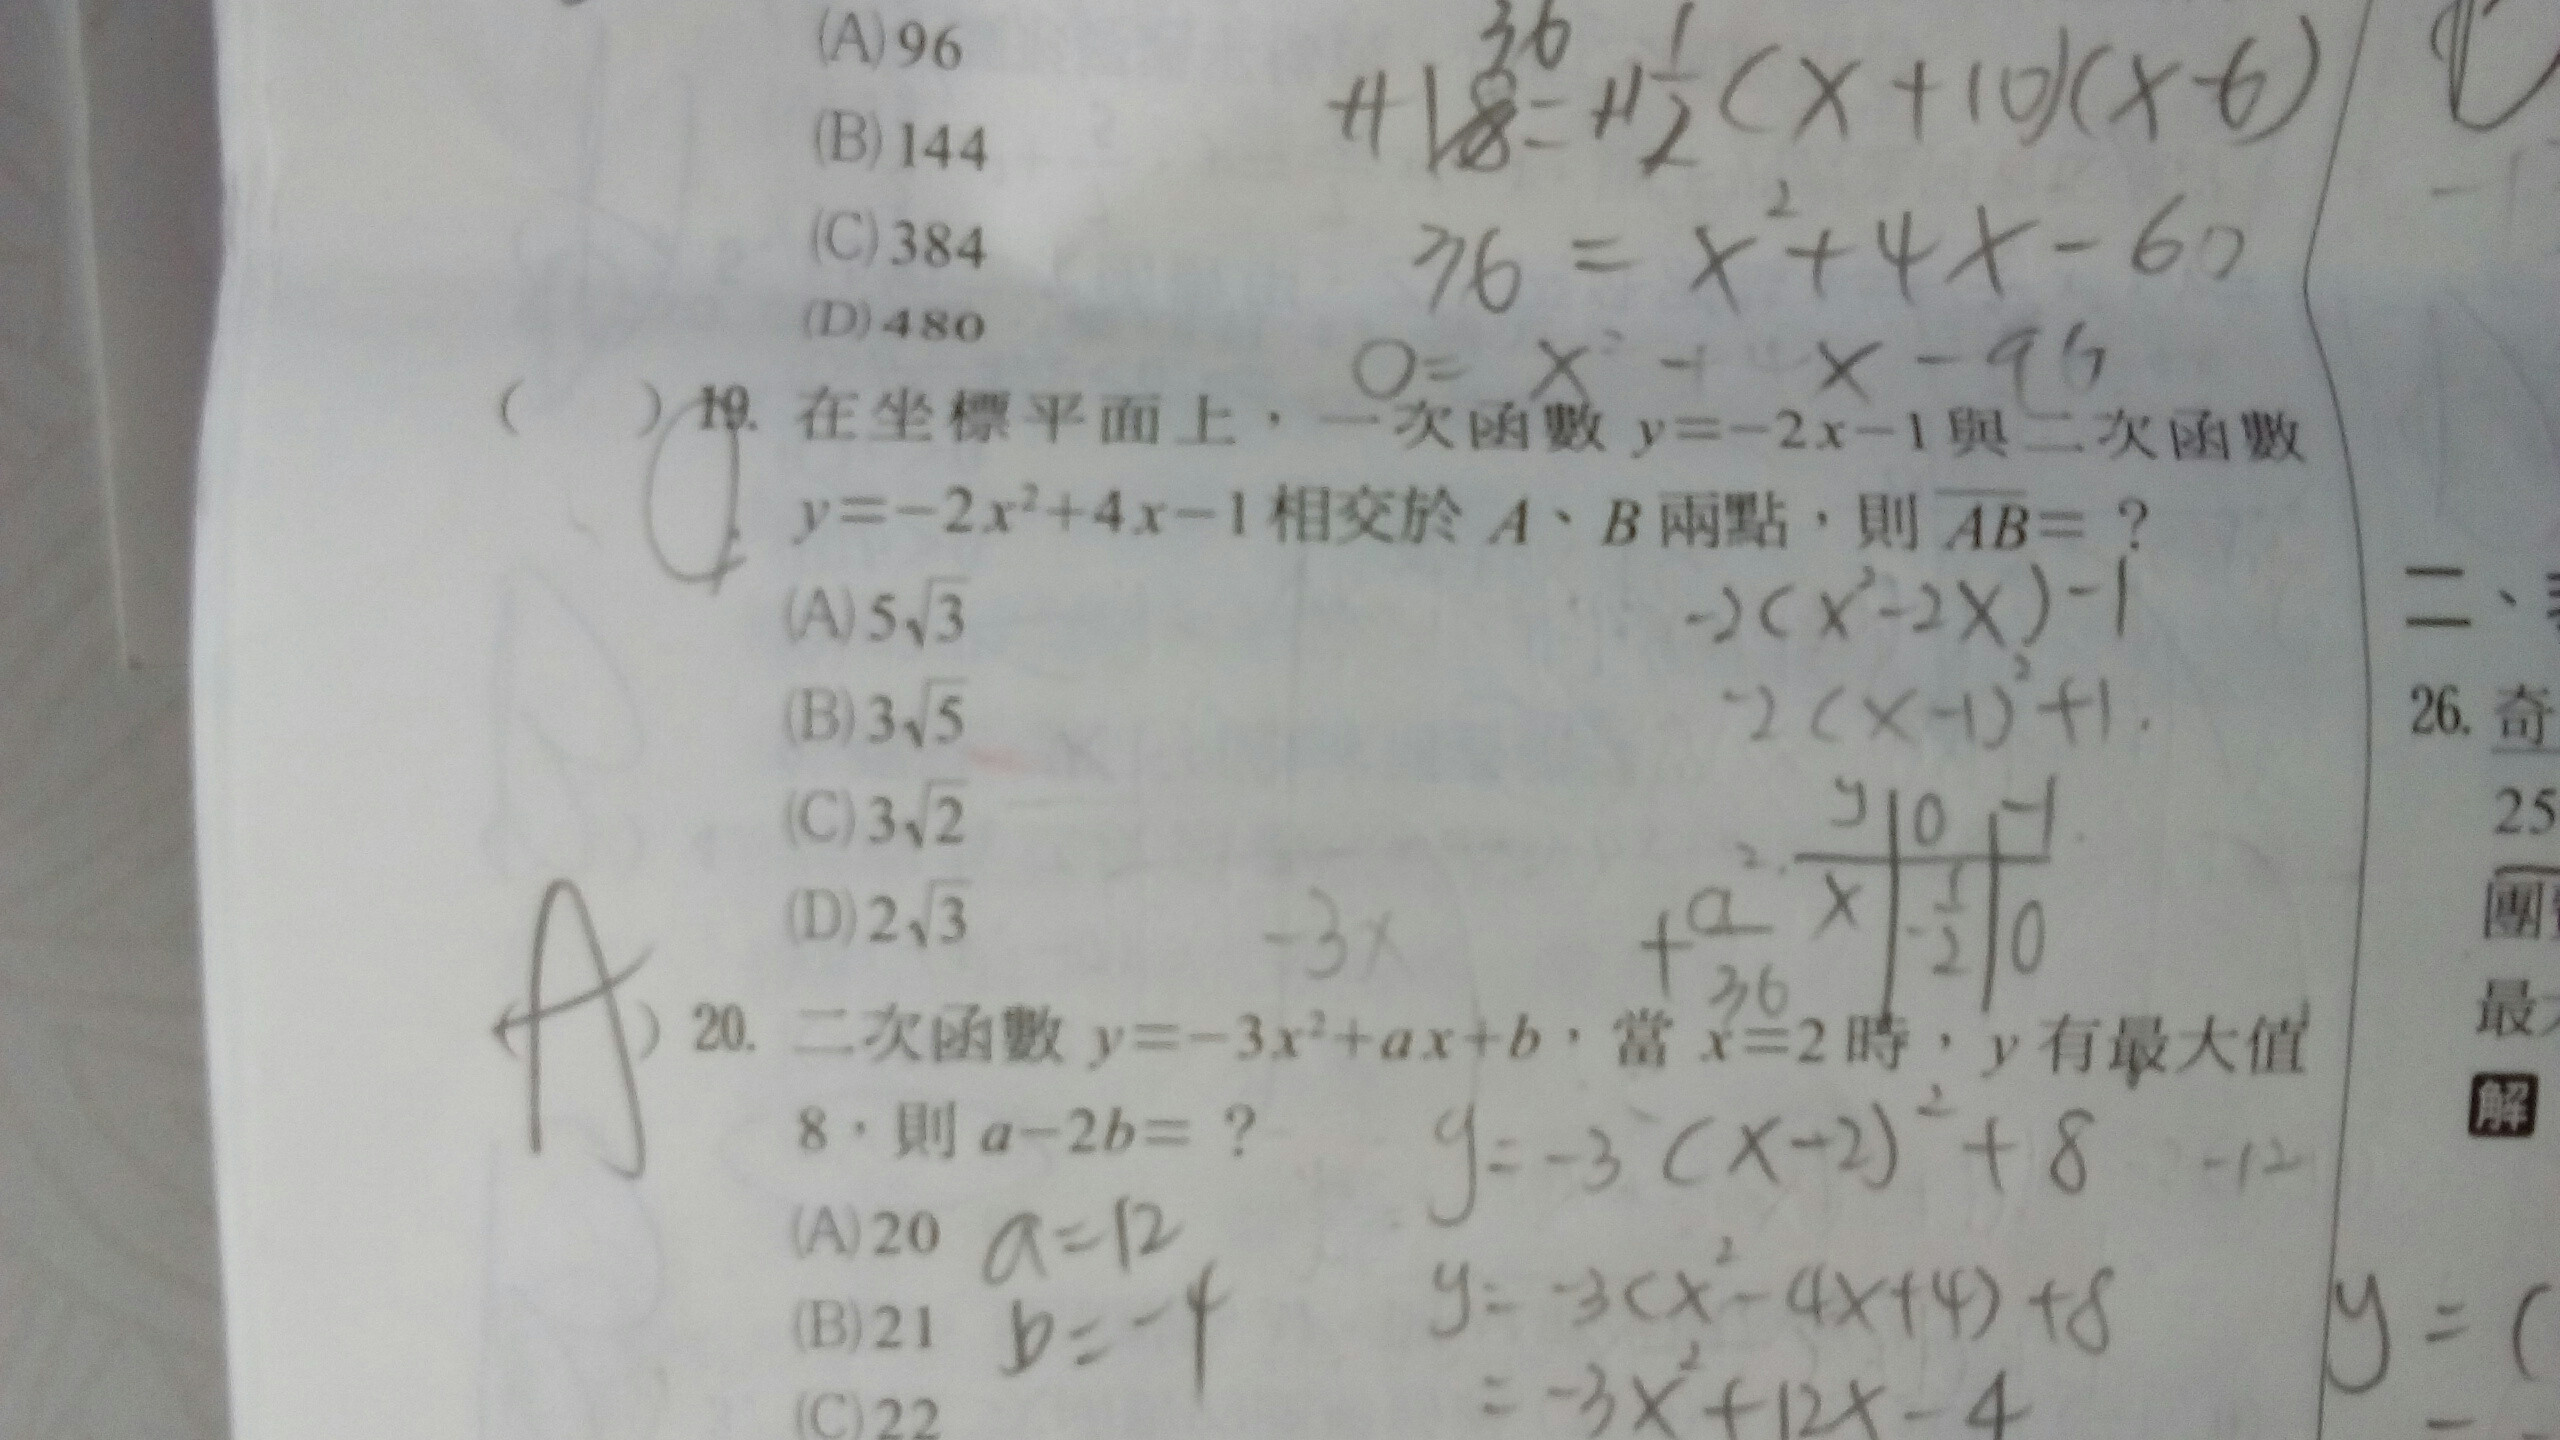 (A) 96
(B) 144
(C) 384
(D) 480
36
18 = 1/2 (x+10)(x-6)
36 = x²+4x-60
0= x² x-96
( ) 19. 在坐標平面上，一次函數 y=-2x-1 與二次函數
y=-2x²+4x-1 相交於 A、B 兩點，則 AB= ？
(A) 5√3
-2(x²-2x)-1
(B) 3√5
-2(x-1)²+1
(C) 3√2
y 0 -1
x -1/2 0
(D) 2√3
-3x
+a²/36
A
( ) 20. 二次函數 y=-3x²+ax+b，當 x=2 時，y 有最大值
8，則 a-2b= ？
y=-3(x-2)²+8
-12
(A) 20 a=12
y=-3(x²-4x+4)+8
(B) 21 b=-4
(C) 22
=-3x²+12x-4
二、
26. 奇
25
團
最大
解
y=(